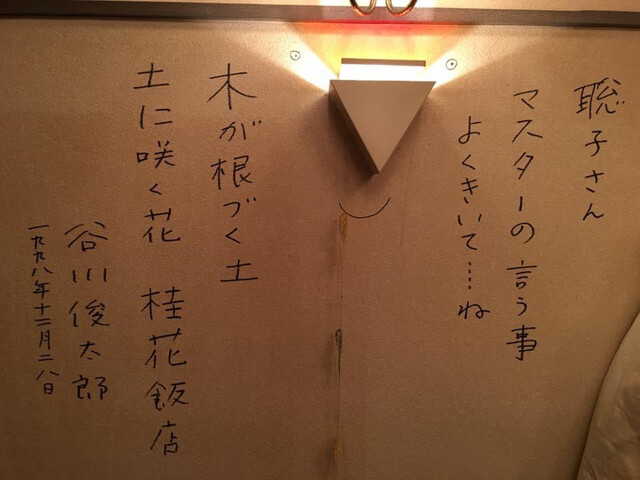 聡子さん
マスターの言う事
よくきいて……ね
木が根づく土
土に咲く花 桂花飯店
谷川俊太郎
一九九八年十二月二八日